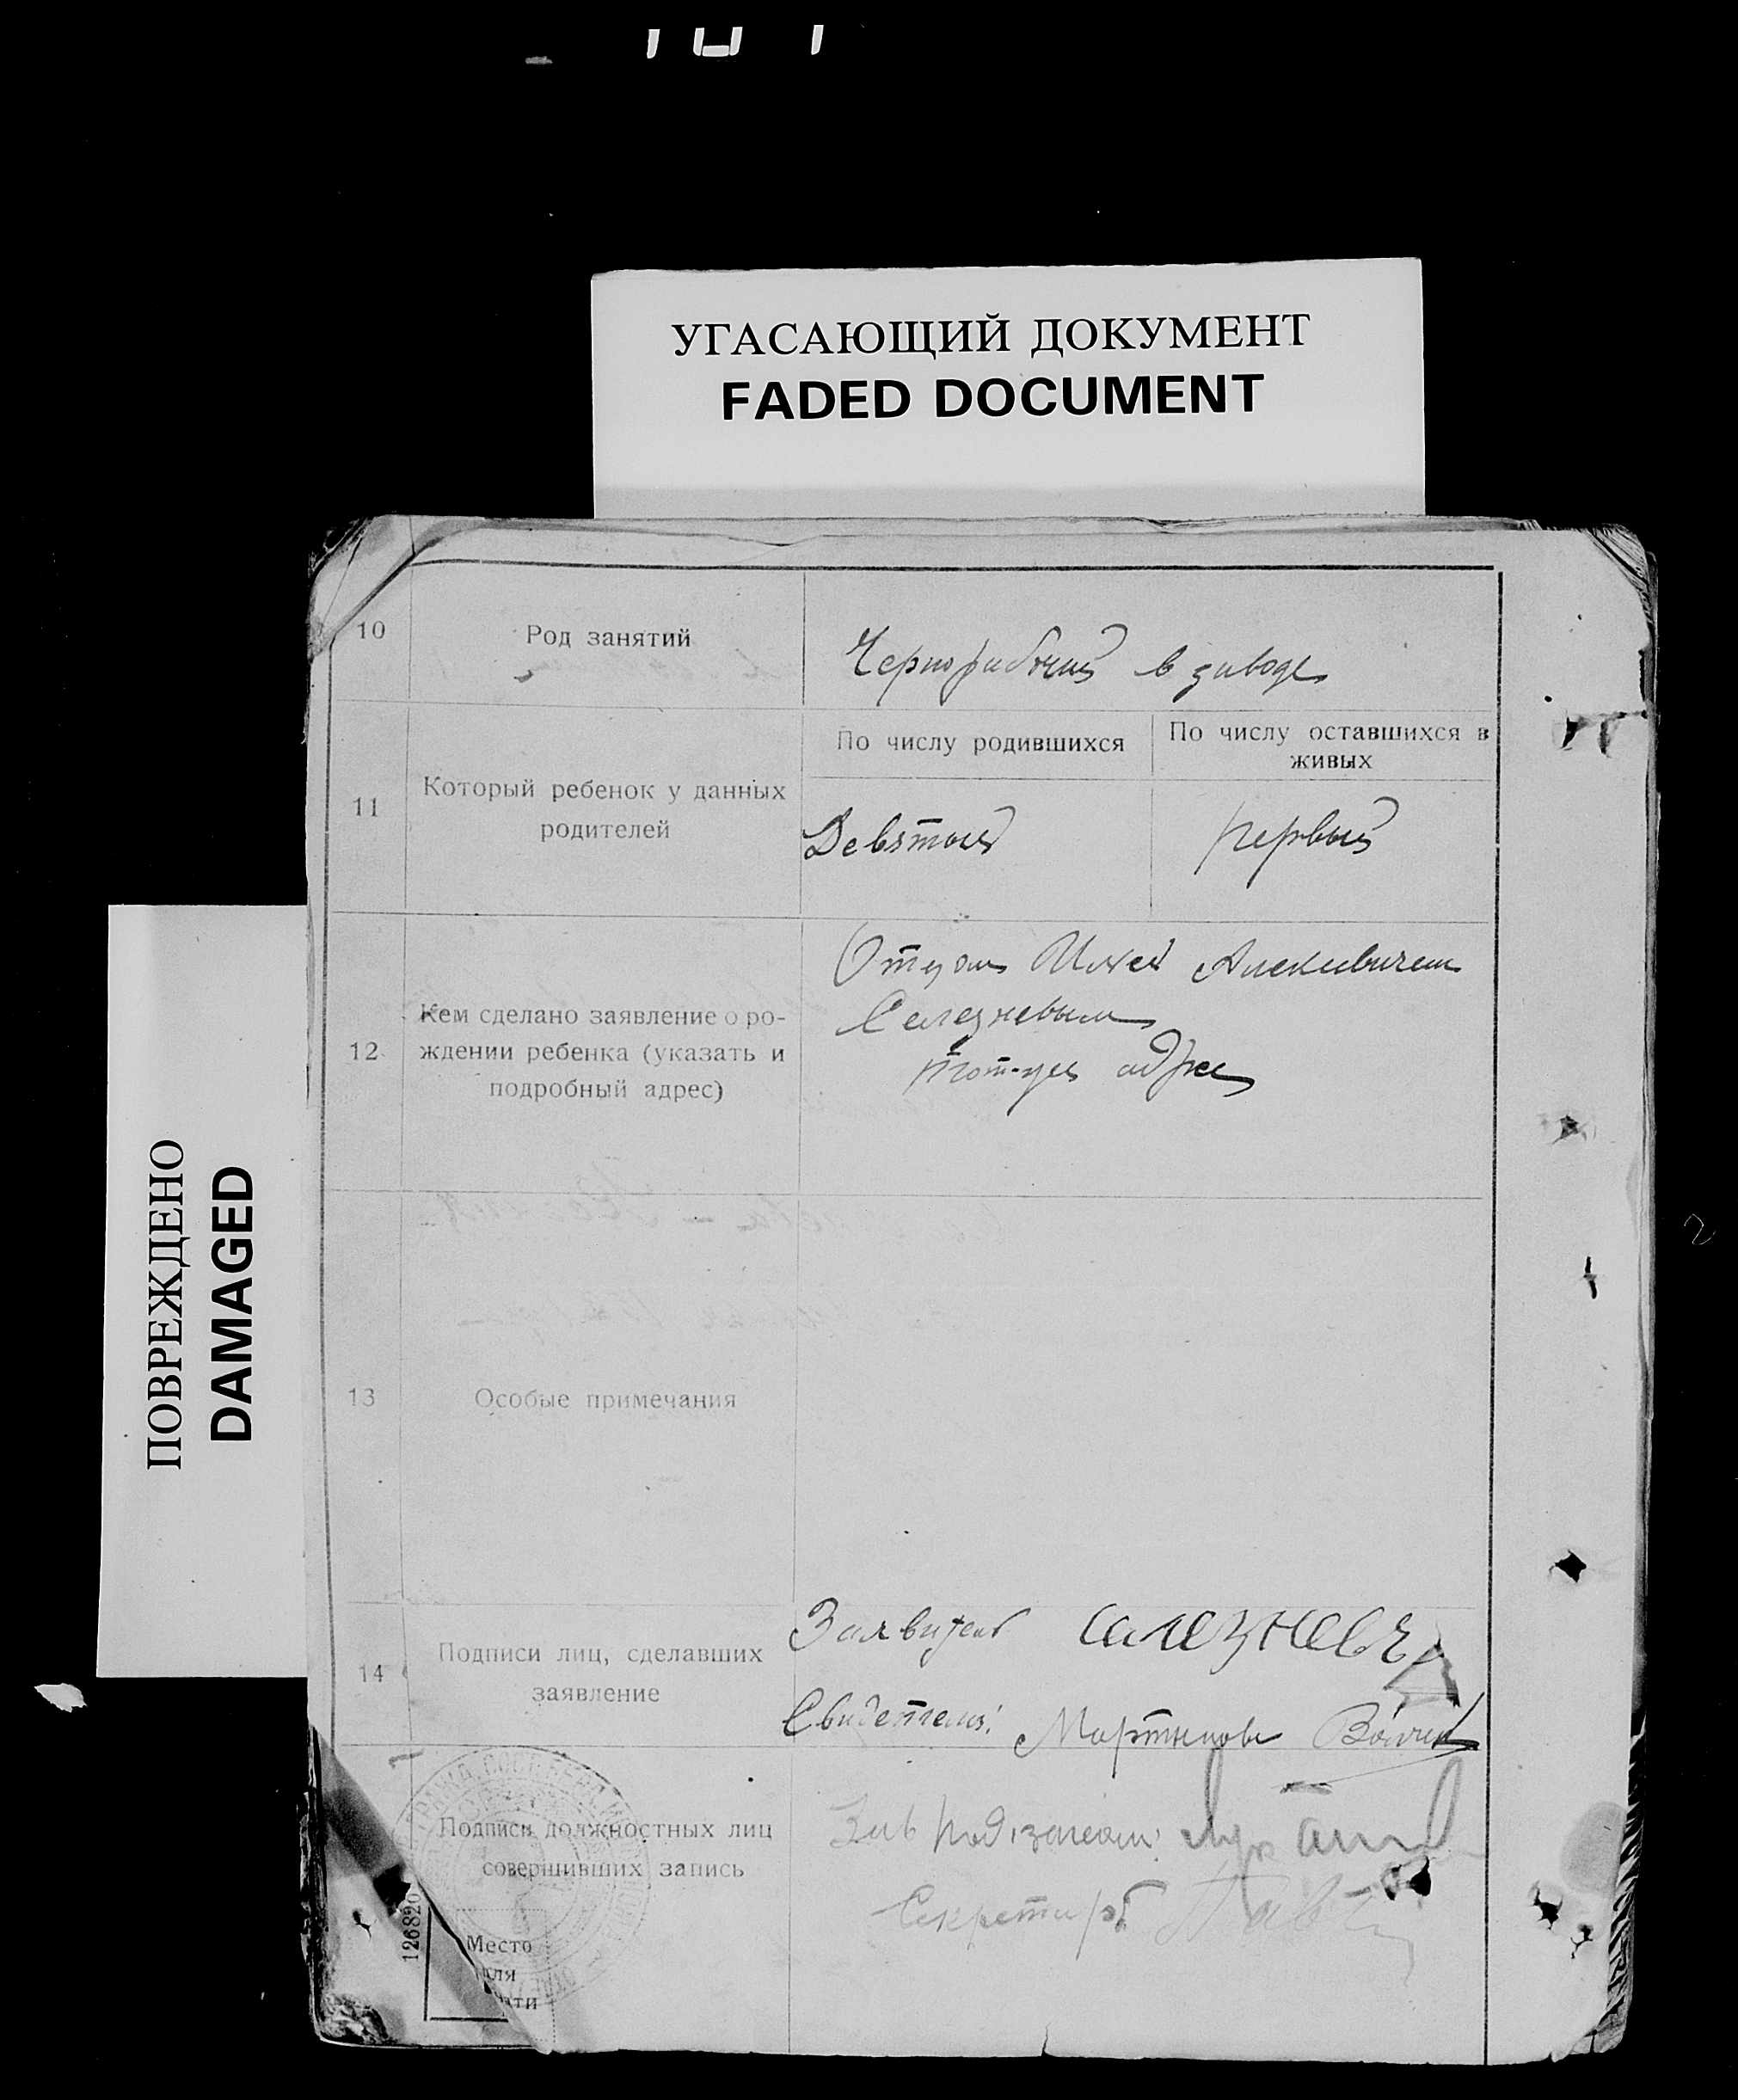 УГАСАЮЩИЙ ДОКУМЕНТ
FADED DOCUMENT
ПОВРЕЖДЕНО
DAMAGED
10
Род занятий
Чернорабочий в заводе
11
Который ребенок у данных
родителей
По числу родившихся
По числу оставшихся в
живых
Девятый
первый
12
Кем сделано заявление о ро-
ждении ребенка (указать и
подробный адрес)
Отцом Алексеевичем
Селезневым
тот-же адрес
13
Особые примечания
14
Подписи лиц, сделавших
заявление
Заявитель Селезнев
Свидетели: Мартынова
Подписи должностных лиц
совершивших запись
Зав
Секретарь
Место
для
126820